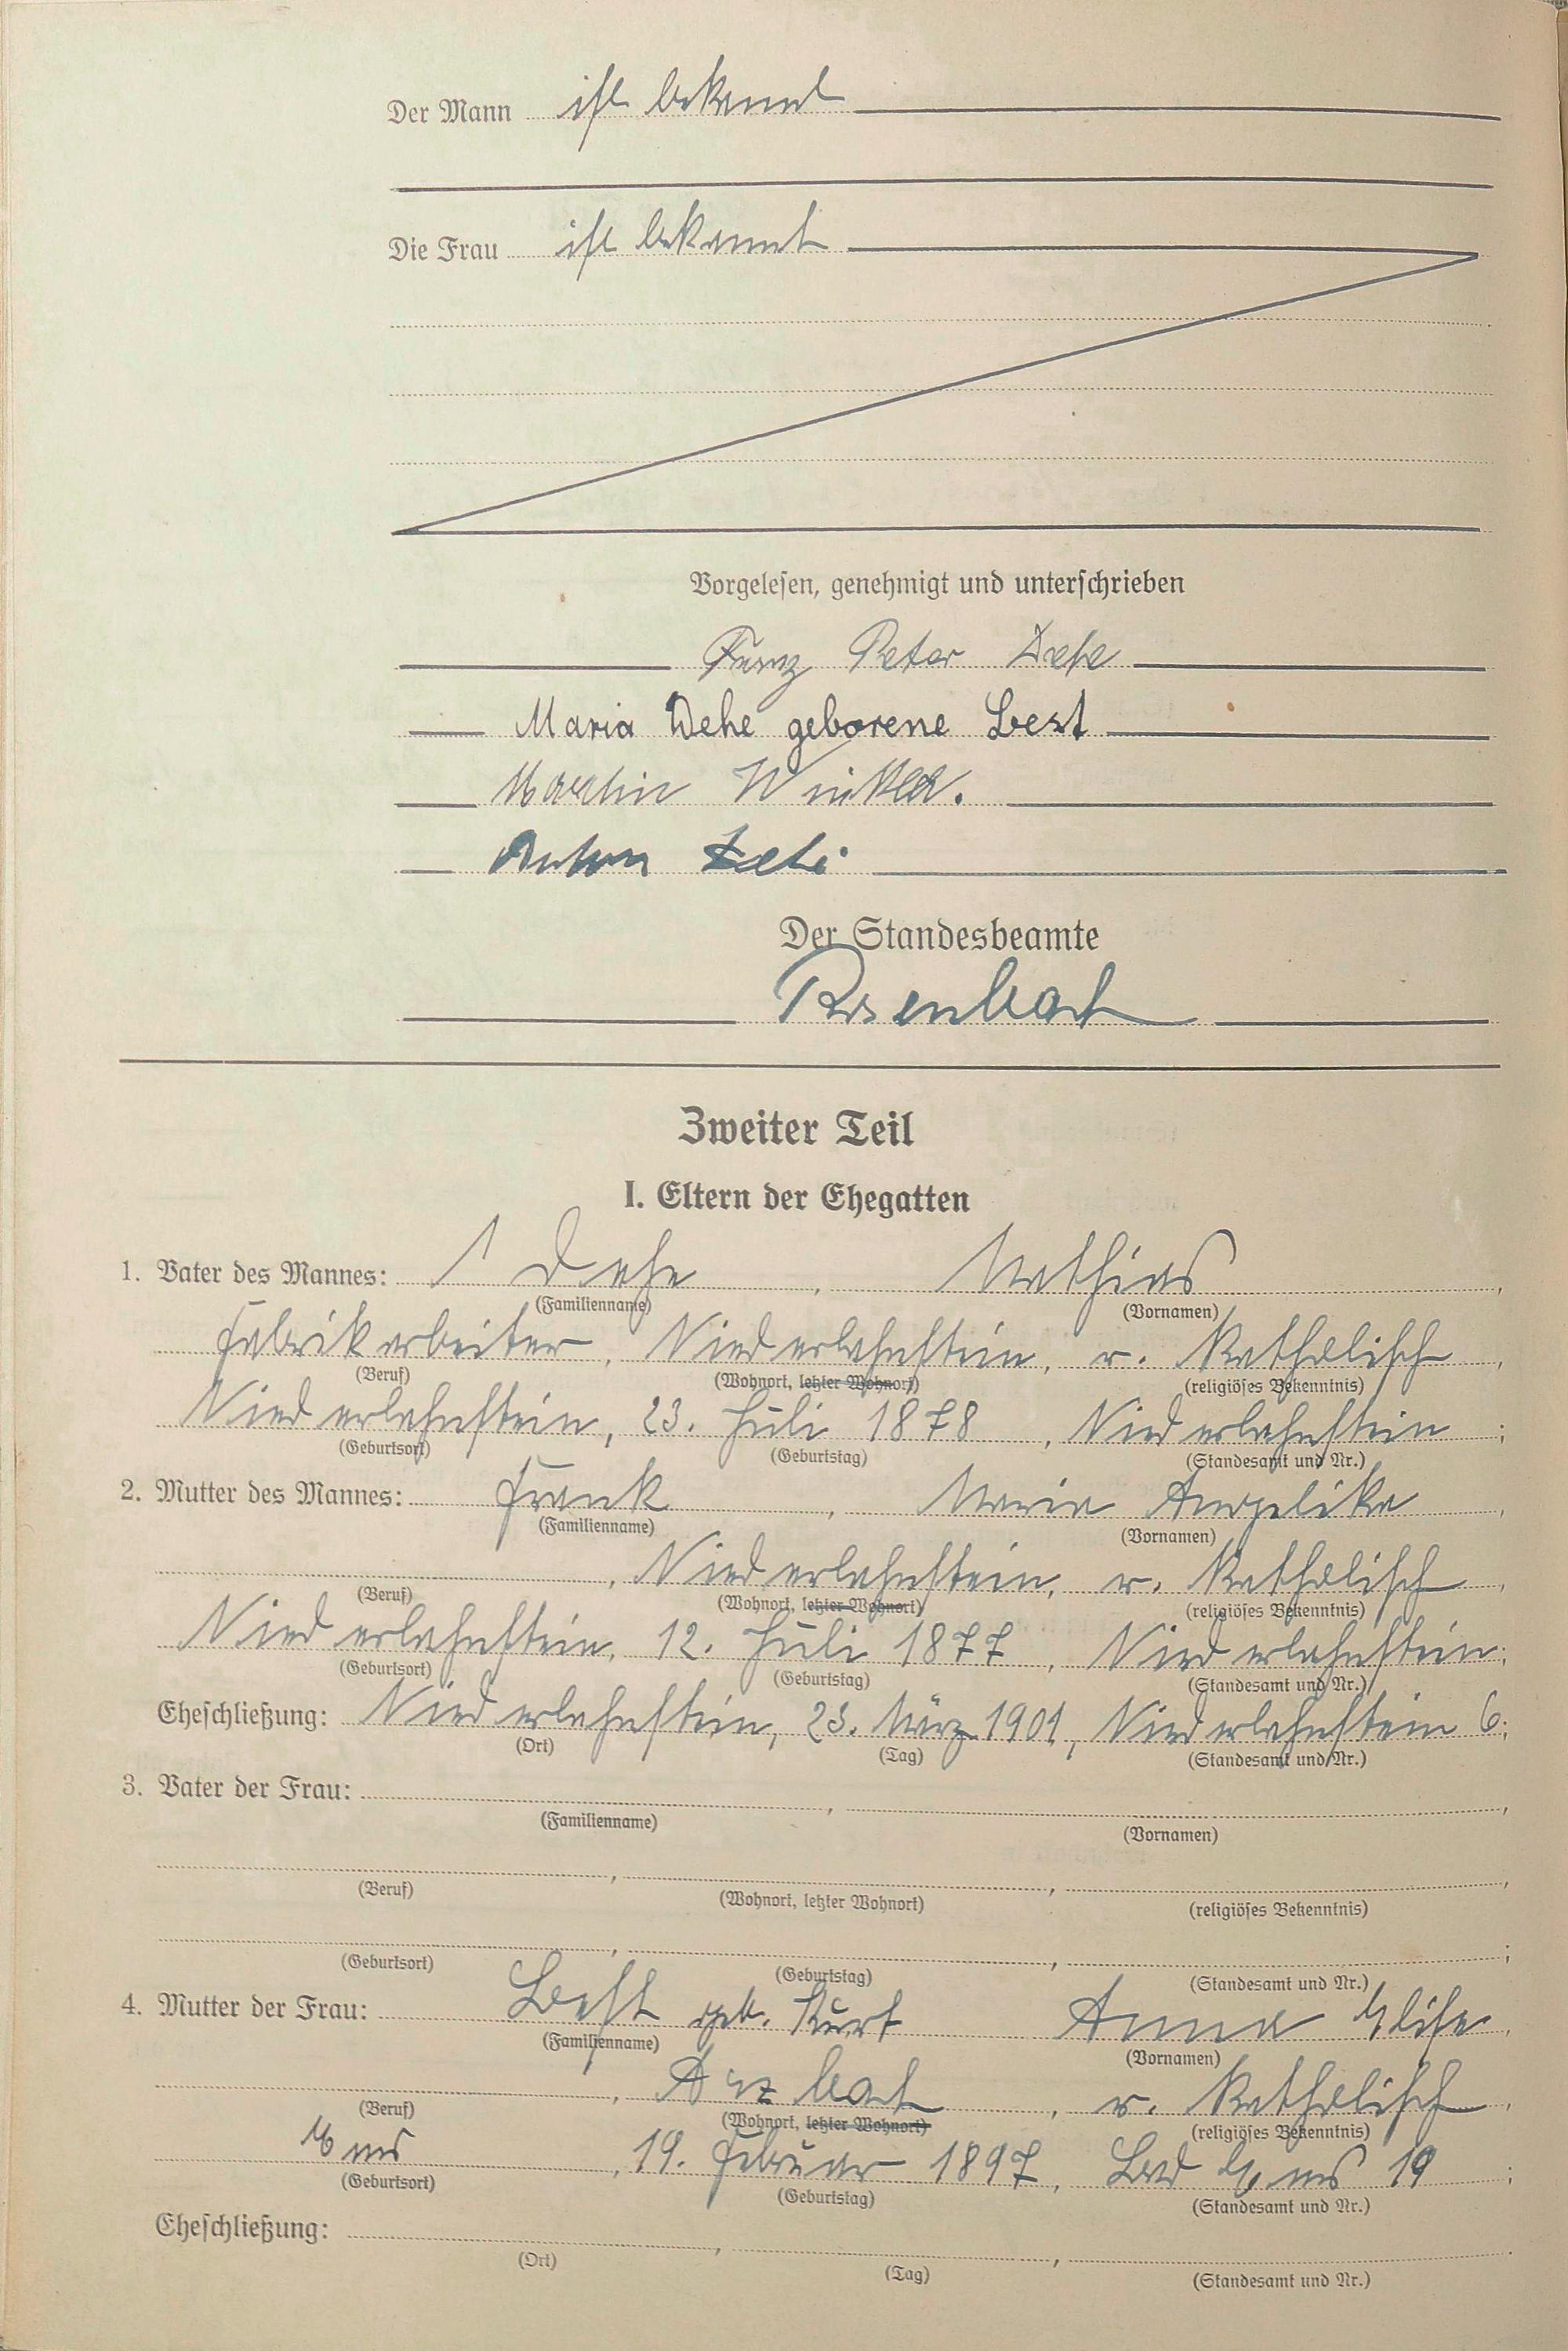 Der Mann ist bekannt
Die Frau ist bekannt
Vorgelesen, genehmigt und unterschrieben
Franz Peter Dehe
Maria Dehe geborene Best
Martin Winkler.
Anton
Der Standesbeamte
Rosenbach
Zweiter Teil
I. Eltern der Ehegatten
1. Vater des Mannes: Dehe, Mathias,
(Familienname) (Vornamen)
Fabrikarbeiter, Niederlahnstein, r. katholisch,
(Beruf) (Wohnort, letzter Wohnort) (religiöses Bekenntnis)
Niederlahnstein, 23. Juli 1878, Niederlahnstein;
(Geburtsort) (Geburtstag) (Standesamt und Nr.)
2. Mutter des Mannes: Frank, Maria Angelika,
(Familienname) (Vornamen)
, Niederlahnstein, r. katholisch,
(Beruf) (Wohnort, letzter Wohnort) (religiöses Bekenntnis)
Niederlahnstein, 12. Juli 1877, Niederlahnstein;
(Geburtsort) (Geburtstag) (Standesamt und Nr.)
Eheschließung: Niederlahnstein, 23. März 1901, Niederlahnstein 6;
(Ort) (Tag) (Standesamt und Nr.)
3. Vater der Frau: , ,
(Familienname) (Vornamen)
, , ,
(Beruf) (Wohnort, letzter Wohnort) (religiöses Bekenntnis)
, , ;
(Geburtsort) (Geburtstag) (Standesamt und Nr.)
4. Mutter der Frau: Best geb. Anna Elise,
(Familienname) (Vornamen)
, Arzbach, r. katholisch,
(Beruf) (Wohnort, letzter Wohnort) (religiöses Bekenntnis)
Ems, 19. Februar 1897, Bad Ems 19;
(Geburtsort) (Geburtstag) (Standesamt und Nr.)
Eheschließung: , ,
(Ort) (Tag) (Standesamt und Nr.)